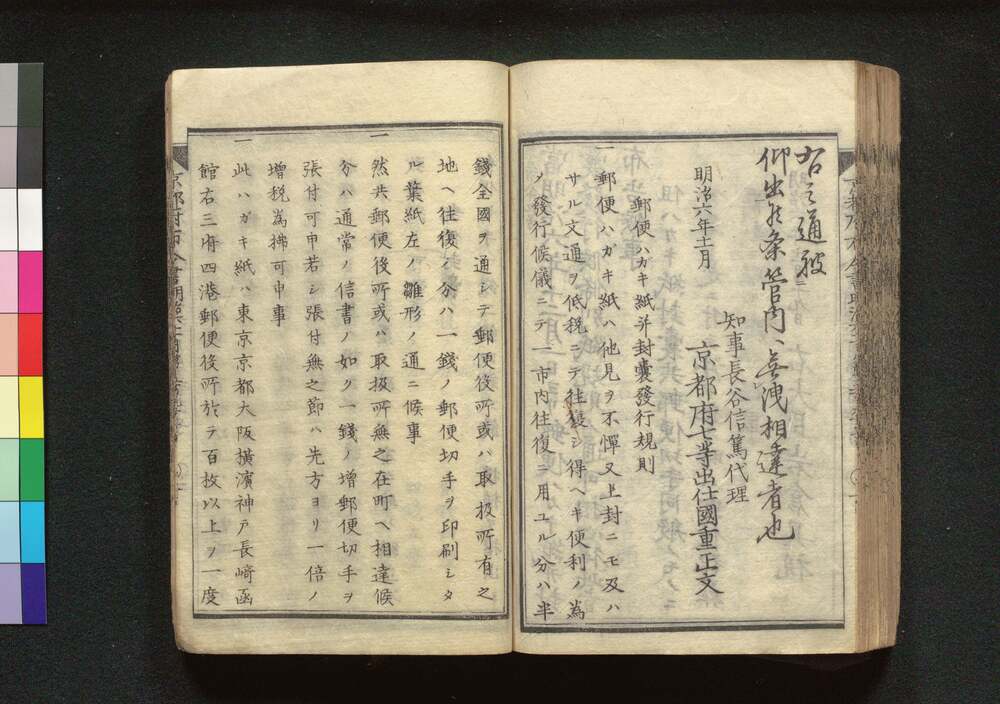 右之通被
仰出候条管内ヘ無洩相達者也
知事長谷信篤代理
京都府七等出仕國重正文
明治六年十一月
郵便ハガキ紙并封嚢發行規則
一 郵便ハガキ紙ハ他見ヲ不憚又上封ニモ及ハ
サル文通ヲ低税ニテ往復シ得ヘキ便利ノ為
ノ發行候儀ニテ一市内往復ニ用ユル分ハ半
錢全國ヲ通シテ郵便役所或ハ取扱所有之
地ヘ往復ノ分ハ一錢ノ郵便切手ヲ印刷シタ
ル葉紙左ノ雛形ノ通ニ候事
一
然共郵便役所或ハ取扱所無之在町ヘ相達候
分ハ通常ノ信書ノ如ク一錢ノ增郵便切手ヲ
張付可申若シ張付無之節ハ先方ヨリ一倍ノ
增税為拂可申事
一 此ハガキ紙ハ東京京都大阪横濱神戸長崎函
館右三府四港郵便役所於テ百枚以上ヲ一度